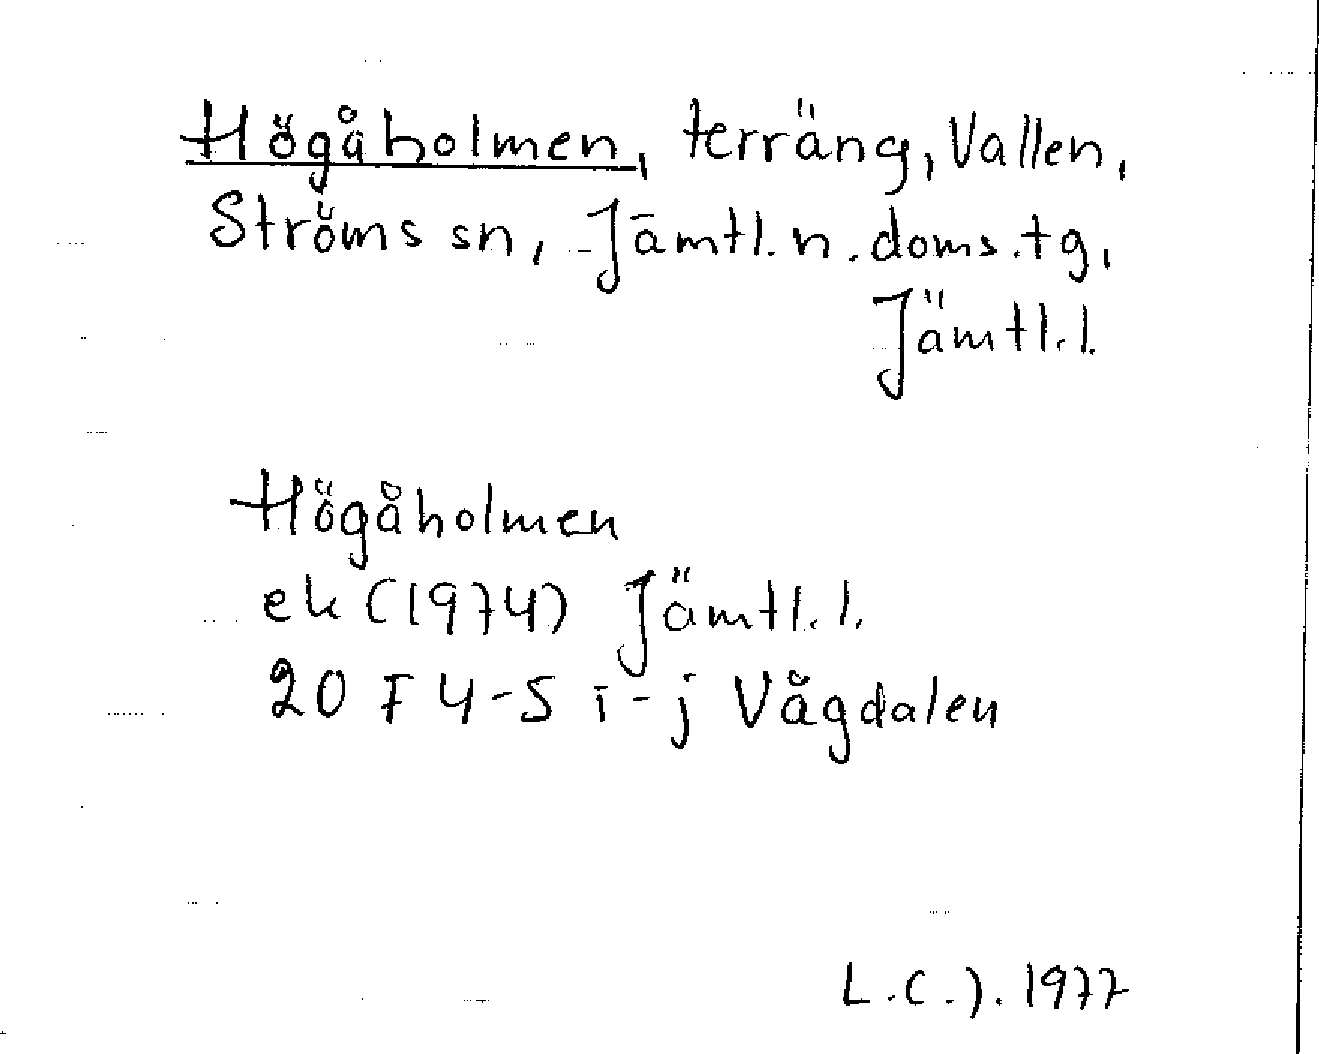 Högåholmen, terräng, Vallen,
Ströms sn, Jämtl. n. doms. tg,
Jämtl. l.
Högåholmen
ek (1974) Jämtl. l.
20 F 4-5 i-j Vågdalen
L.C.J. 1977